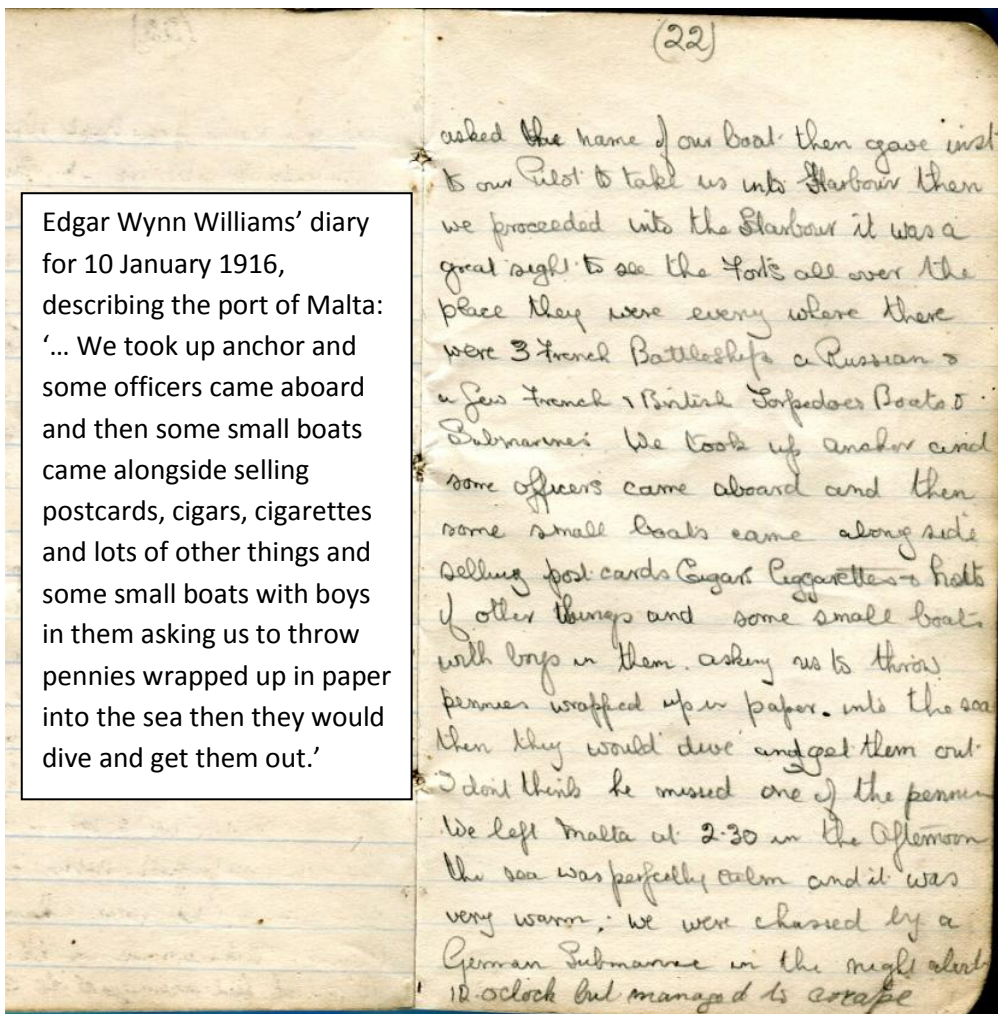 Edgar Wynn Williams’ diary
for 10 January 1916,
describing the port of Malta:
‘… We took up anchor and
some officers came aboard
and then some small boats
came alongside selling
postcards, cigars, cigarettes
and lots of other things and
some small boats with boys
in them asking us to throw
pennies wrapped up in paper
into the sea then they would
dive and get them out.’
(22)
asked the name of our boat then gave inst
to our Pilot to take us into Harbour then
we proceeded into the Harbour it was a
great sight to see the Forts all over the
place they were every where there
were 3 French Battleships a Russian &
a few French & British Torpedoes Boats &
Submarines. We took up anchor and
some officers came aboard and then
some small boats came along side
selling post cards Cigars Ciggarettes &
of other things and some small boats
with boys in them. asking us to throw
pennies wrapped up in paper. into the sea
then they would dive and get them out
I dont think he missed one of the pennies
We left Malta at 2.30 in the Afternoon
the sea was perfectly calm and it was
very warm; we were chassed by a
German Submarine in the night
10 oclock but managed to escape